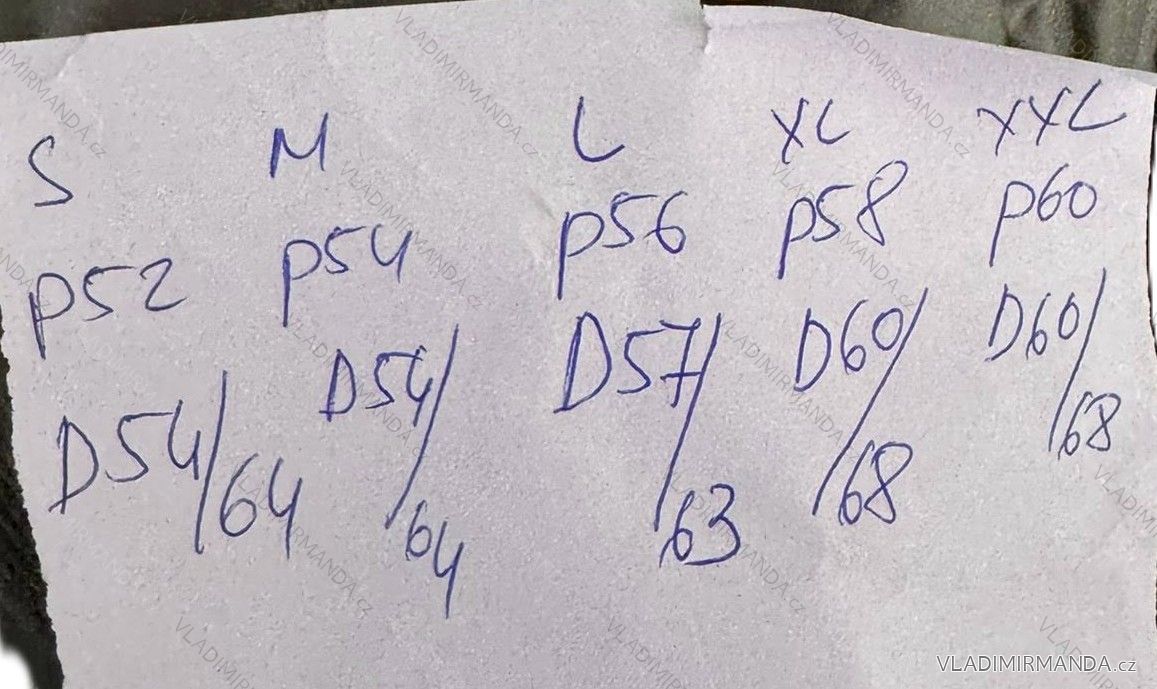 S M L XL XXL
P52 P54 P56 P58 P60
D54/64 D54/64 D57/63 D60/68 D60/68
VLADIMIRMANDA.cz